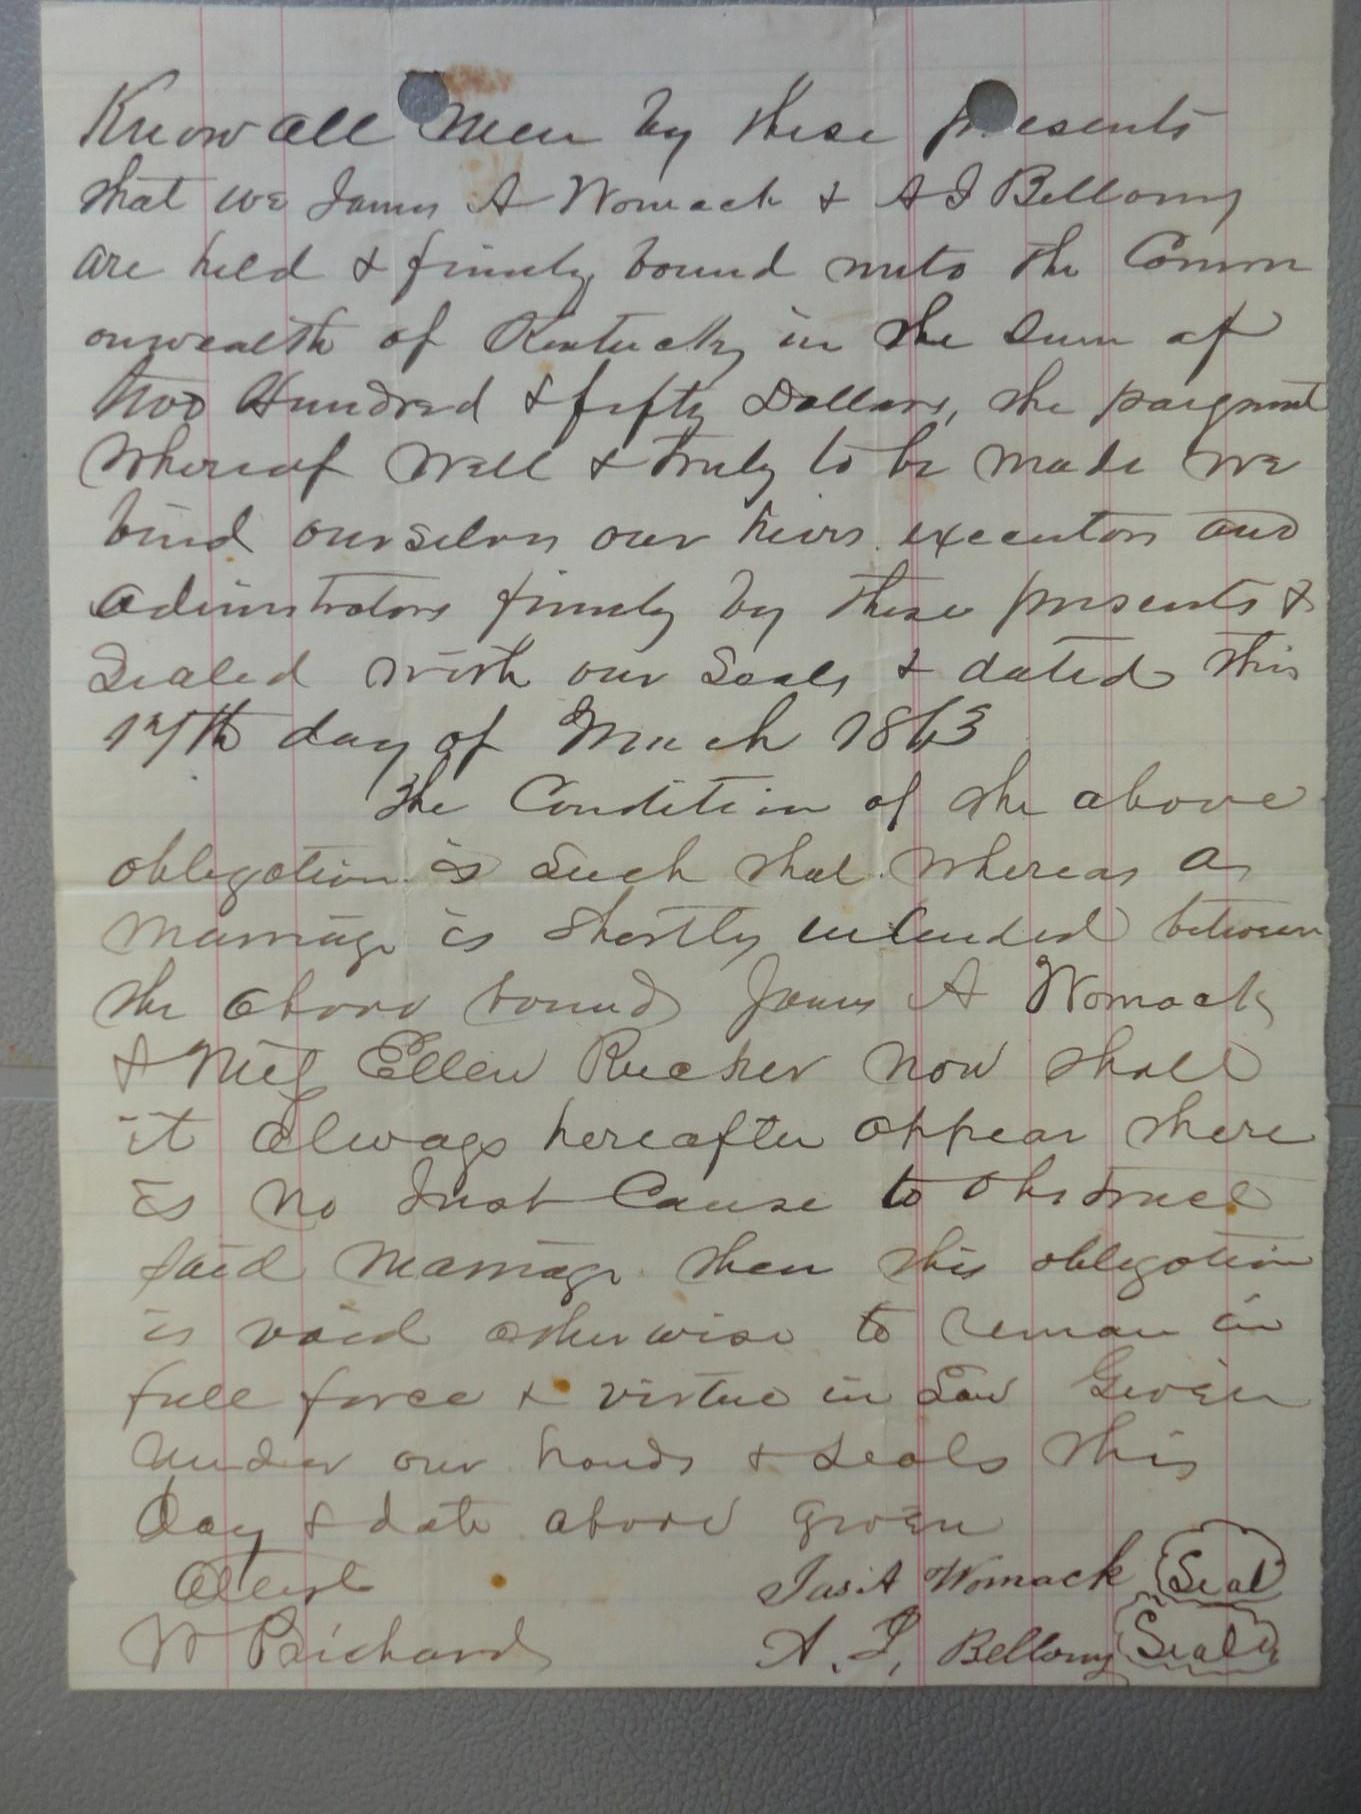 Know all Men by these presents
that we James A Womack & A J Bellomy
are held & firmly bound unto the Comm
onwealth of Kentucky in the Sum of
two Hundred & fifty Dollars, the paygment
whereof well & truly to be made we
bind ourselves our heirs executors and
adminstrators firmly by these presents &
Sealed with our Seals & dated this
17th day of March 1863
The Condition of the above
obligation is Such that whereas a
marriage is Shortly intended between
the above bound James A Womack
& Ellen Rucker now shall
it always hereafter appear there
is no Just Cause to obstruct
said marriage then this obligation
is void otherwise to remain in
full force & virtue in Law Given
under our hands & seals this
day & date above given
Attest Jas A Womack Seal
W Prichard A. J. Bellomy Seal